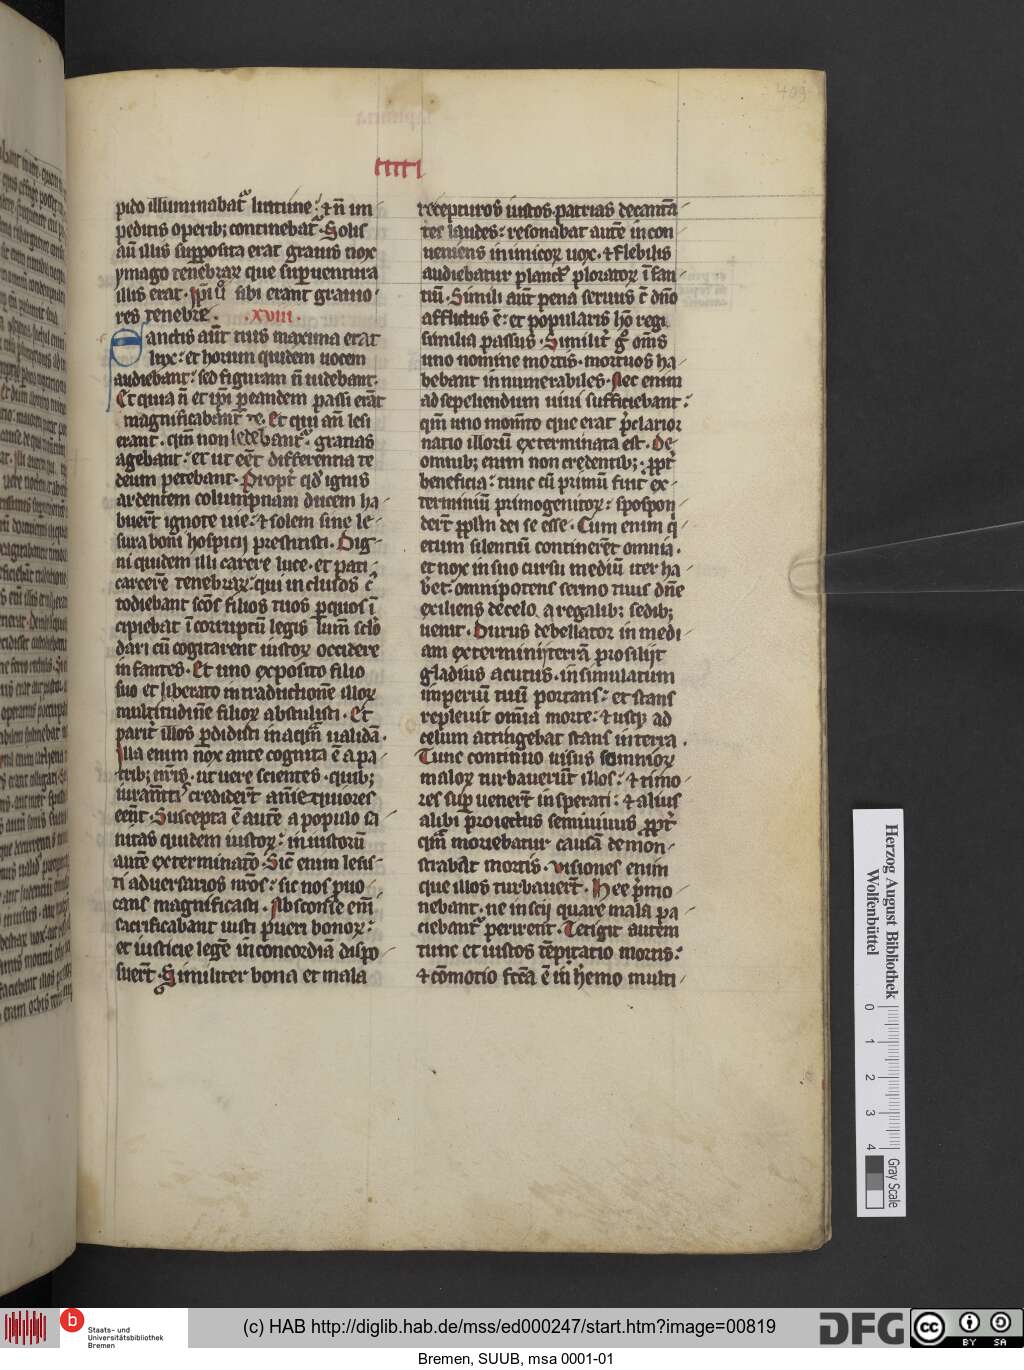 409
pido illuminabat᷑ lumine: ⁊ n̄ im
peditis operib; continebat᷑. Solis
aū illis supposita erat grauis nox
ymago tenebraꝝ que superuentura
illis erat. Ip̄i ḡ sibi erant grauio
res tenebre. .XVIII.
Sanctis aūt tuis maxima erat
lux: et horum quidem uocem
audiebant: sed figuram n̄ uidebant.
Et quia n̄ et ip̄i ꝑ eandem passi erāt
magnificabant te. Et qui an̄ lesi
erant. qm̄ non ledebant᷑. gratias
agebant: et ut eēt differentia te
deum petebant. Propt̄ qd̓ ignis
ardentem columpnam ducem ha
buer̄t ignote uie: ⁊ solem sine le
sura boni hospicij prestitisti. Dig
ni quidem illi carere luce. et pati
carcerē tenebraꝝ: qui inclusos c̄
todiebant sc̄os filios tuos ꝑ quos ī
cipiebat īcorruptū legis lum̄ sc̄lo
dari cū cogitarent iustoꝝ occidere
infantes. Et uno exposito filio
suo et liberato in traductionē illoꝝ
multitudinē filioꝝ abstulisti. Et
parit̄ illos ꝑdidisti in aqm̄ ualidā.
Illa enim nox ante cognita ē a pa
trib; nr̄is. ut uere scientes. quib;
iuram̄ti credidert̄ anīeq̄uiores
eēnt. Suscepta ē autē a populo sa
nitas quidem iustoꝝ: iniustorū
autē exterminatō. Sic̄ enim lesis
ti aduersarios nr̄os: sic nos puo
cans magnificasti. Absconse em̄
sacrificabant iusti pueri bonoꝝ:
et iusticie legē in concordiā dispo
suer̄t. Similiter bona et mala
recepturos iustos patrias decantā
tes laudes: resonabat autē incon
ueniens inimicoꝝ uox. ⁊ flebilis
audiebatur planct᷒ ploratoꝝ ī fan
tiū. Simili aūt pena seruus c̄ dn̄o
afflictus ē: et popularis hō regi
similia passus. Similit̄ ḡ om̄s
uno nomine mortis. mortuos ha
bebant innumerabiles. Nec enim
ad sepeliendum uiui sufficiebant:
qm̄ uno mom̄to que erat p̄clarior
natio illorū exterminata est. De
omnib; enim non credentib;. ꝓpt̄
beneficia: tunc cū primū fuit ex
terminiū primogenitoꝝ: spospon
dert̄ ꝓplm̄ dei se esse. Cum enim q̓
etum silentiū contineret omnia.
et nox in suo cursu mediū iter ha
bēt: omnipotens sermo tuus dn̄e
exiliens de celo a regalib; sedib;
uenit. Durus debellator in medi
am exterminij terrā prosilijt
gladius acutus. insimulatum
imperiū tuū portans: et stans
repleuit omīa morte: ⁊ usꝗ ad
celum attingebat stans in terra.
Tunc continuo uisus somnioꝝ
maloꝝ turbauerūt illos: ⁊ timo
res suꝑ uenert̄ insperati: ⁊ alius
alibi proiectus semiuiuus ꝓpt̄
qm̄ moriebatur causā demon
strabāt mortis. Visiones enim
que illos turbauert̄. Hec p̄mo
nebant. ne inscij quare mala pa
ciebant᷑ perirent. Tetigit autem
tunc et iustos tēptatio mortis:
⁊ cōmotio fc̄a ē in hēmo multi
Herzog August Bibliothek
Wolfenbüttel
0 1 2 3 4
Gray Scale
b Staats- und
Universitätsbibliothek
Bremen
(c) HAB http://diglib.hab.de/mss/ed000247/start.htm?image=00819
DFG
cc BY SA
Bremen, SUUB, msa 0001-01